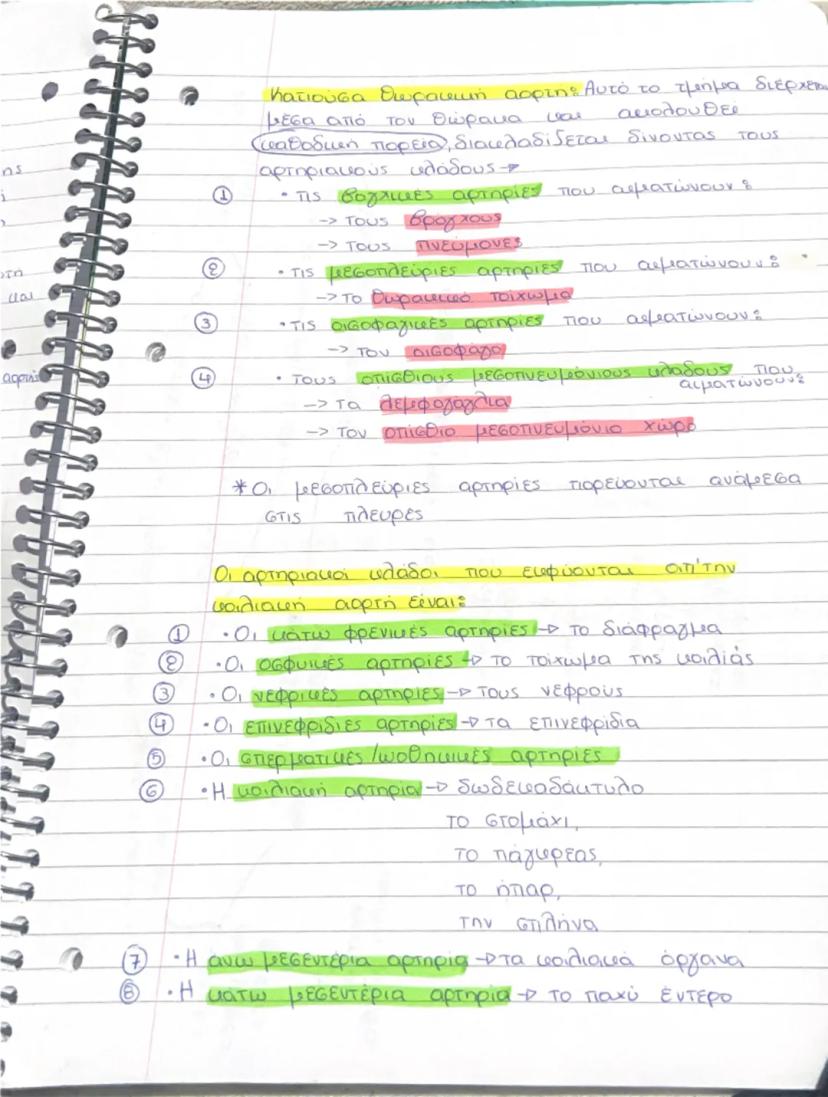 Κατιούσα θωρακική αορτή: Αυτό το τμήμα διέρχεται
μέσα από τον θώρακα και ακολουθεί
καθοδική πορεία, διακλαδίζεται δίνοντας τους
αρτηριακούς κλάδους →
① • τις βογχικές αρτηρίες που αιματώνουν:
→ τους βρόγχους
→ τους πνεύμονες
② • τις μεσοπλεύριες αρτηρίες που αιματώνουν:
→ το θωρακικό τοίχωμα
③ • τις οισοφαγικές αρτηρίες που αιματώνουν:
→ τον οισοφάγο
④ • τους οπίσθιους μεσοπνευμόνιους κλάδους που
αιματώνουν:
→ τα λεμφογάγλια
→ τον οπίσθιο μεσοπνευμόνιο χώρο
* Οι μεσοπλεύριες αρτηρίες πορεύονται ανάμεσα
στις πλευρές
Οι αρτηριακοί κλάδοι που εκφύονται απ'την
κοιλιακή αορτή είναι:
① • Οι κάτω φρενικές αρτηρίες → το διάφραγμα
② • Οι οσφυικές αρτηρίες → το τοίχωμα της κοιλιάς
③ • Οι νεφρικές αρτηρίες → τους νεφρούς
④ • Οι επινεφρίδιες αρτηρίες → τα επινεφρίδια
⑤ • Οι σπερματικές/ωοθηκικές αρτηρίες
⑥ • Η κοιλιακή αρτηρία → δωδεκαδάκτυλο
το στομάχι,
το πάγκρεας,
το ήπαρ,
την σπλήνα
⑦ • Η άνω μεσεντέρια αρτηρία → τα κοιλιακά όργανα
⑧ • Η κάτω μεσεντέρια αρτηρία → το παχύ έντερο
και
αορτής